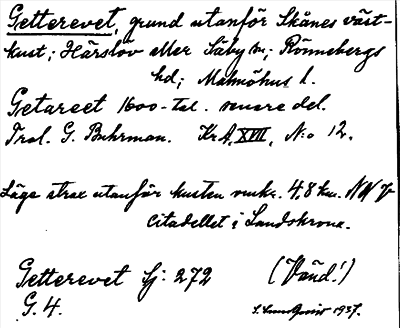 Getterevet, grund utanför Skånes väst-
kust; Härslöv eller Säby sn; Rönnebergs
hd; Malmöhus l.
Getareet 1600-tal. senare del.
Trol. G. Buhrman. KrA, XVII, N:o 12.
Läge strax utanför kusten omkr. 4,8 km. NNV
Citadellet i Landskrona.
Getterevet Sj: 272 (Vänd!)
G. 4. 1937.